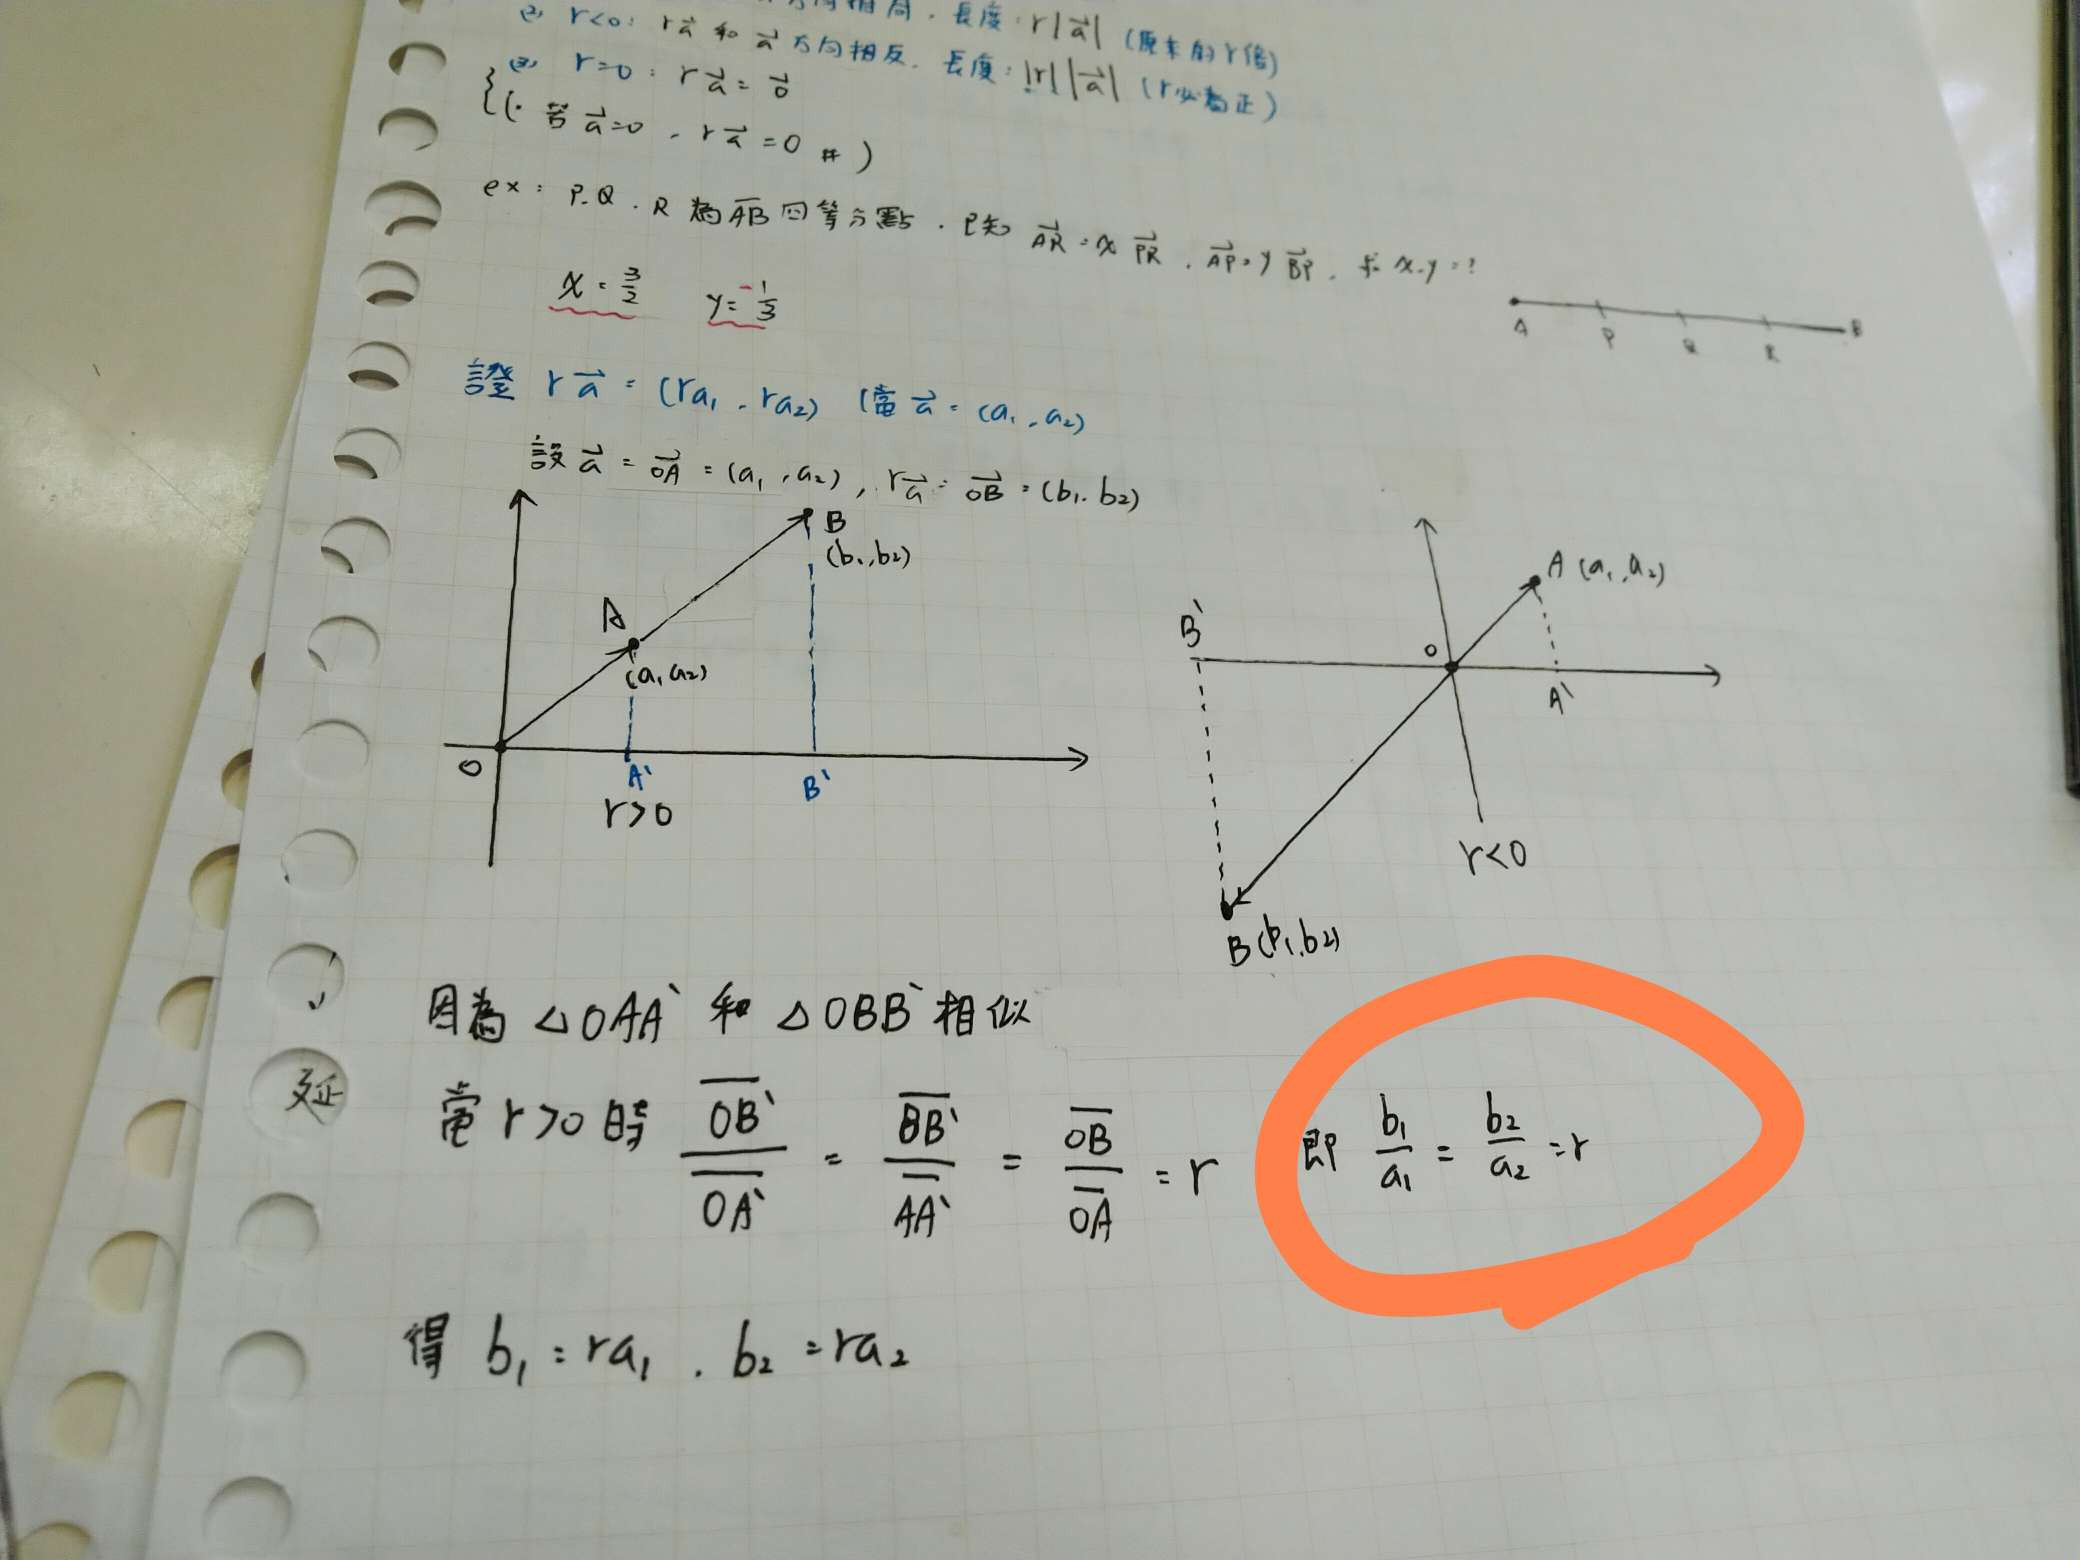 方向相同.長度:r|a⃗| (原來的r倍)
(2) r<0: ra⃗ 和 a⃗ 方向相反.長度:|r||a⃗| (r必為正)
(3) r=0: ra⃗ = 0⃗
{(. 若 a⃗=0 , ra⃗=0 #)
ex: P.Q.R 為 A̅B̅ 四等分點.已知 AR⃗ = x PR⃗ , AP⃗ = y BP⃗ , 求 x.y=?
x = 3/2 y = -1/3
A P Q R B
證 ra⃗ = (ra₁ , ra₂) (當 a⃗ = (a₁ , a₂)
設 a⃗ = OA⃗ = (a₁ , a₂) , ra⃗ = OB⃗ = (b₁. b₂)
B
(b₁,b₂)
A
(a₁ a₂)
O A` B`
r>0
A (a₁ , a₂)
B` O A`
r<0
B(b₁.b₂)
因為 △OAA` 和 △OBB` 相似
延
當 r>0 時 O̅B̅`/O̅A̅` = B̅B̅`/A̅A̅` = O̅B̅/O̅A̅ = r 即 b₁/a₁ = b₂/a₂ = r
得 b₁ = ra₁ . b₂ = ra₂